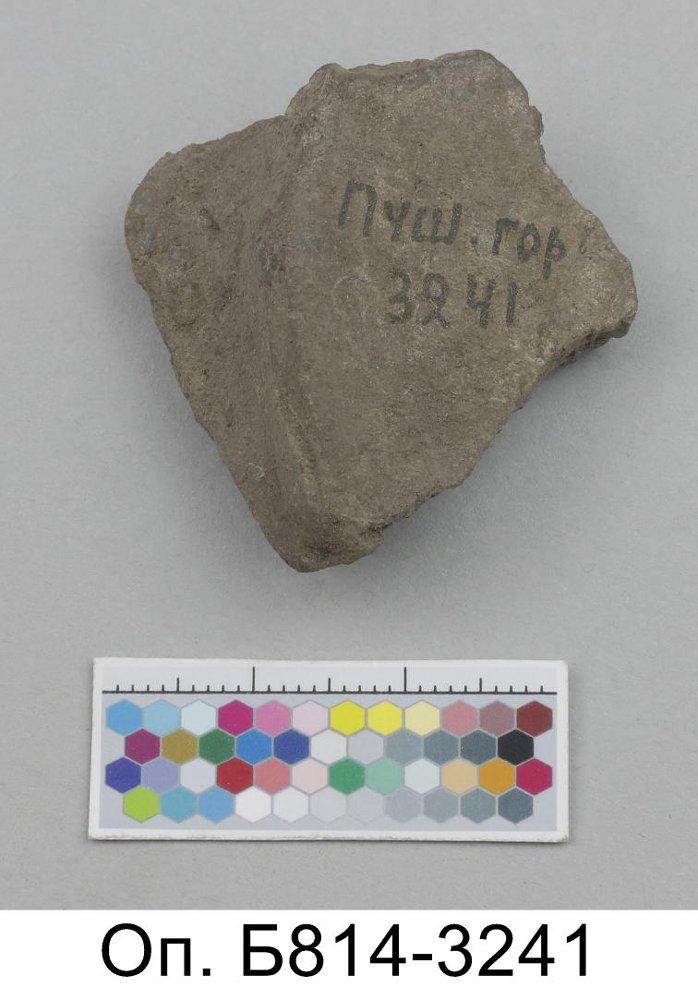 Пуш. гор
3241
Оп. Б814-3241